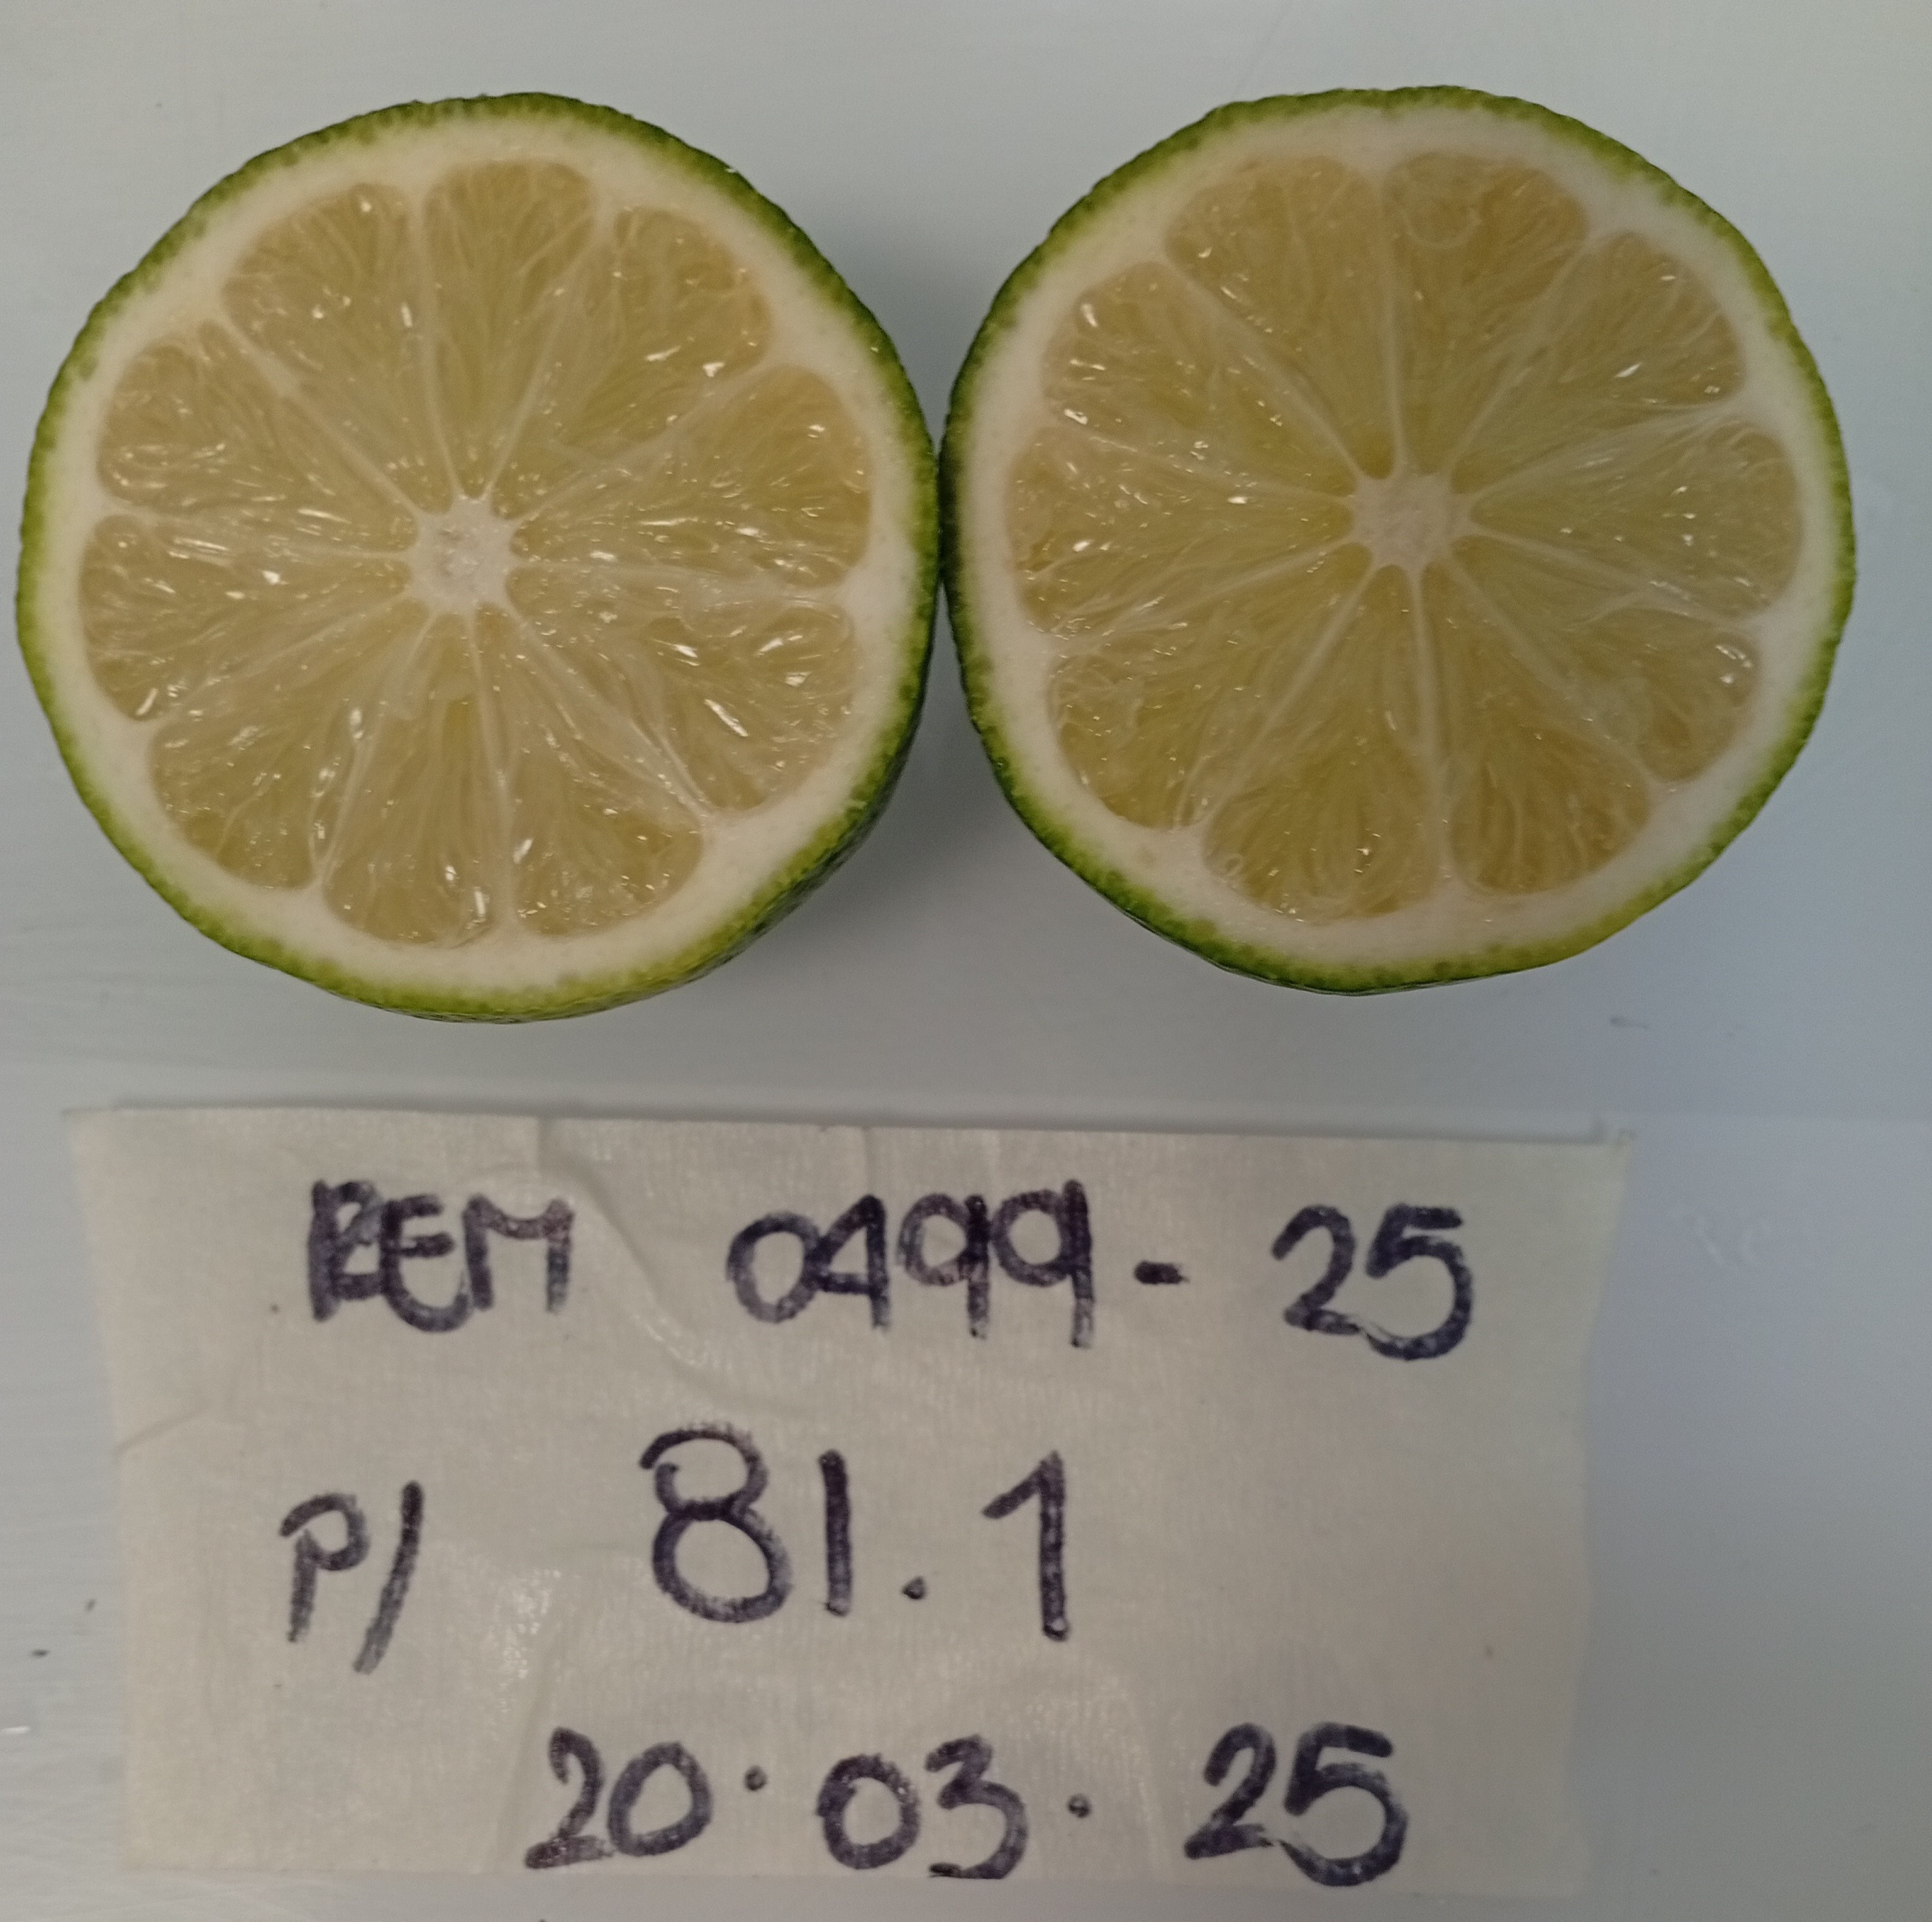 REM 0499-25
P/ 81.1
20.03.25